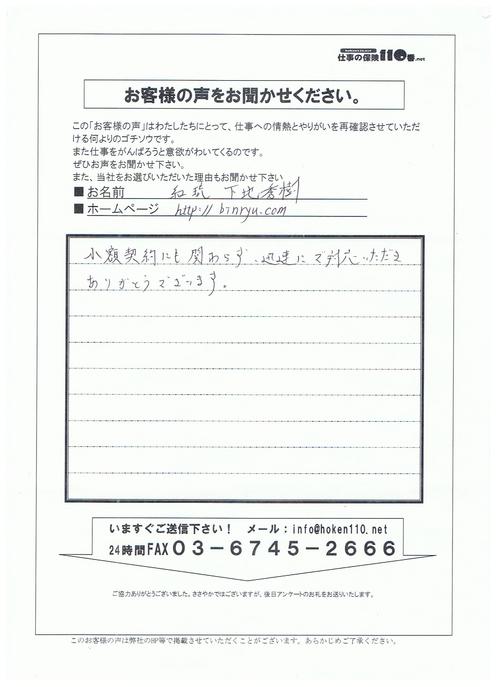 仕事の保険110番.net
お客様の声をお聞かせください。
この「お客様の声」はわたしたちにとって、仕事への情熱とやりがいを再確認させていただ
ける何よりのゴチソウです。
また仕事をがんばろうと意欲がわいてくるのです。
ぜひお声をお聞かせ下さい。
また、当社をお選びいただいた理由もお聞かせ下さい
■お名前 紅琉 下地秀樹
■ホームページ http://binryu.com
小額契約にも関わらず、迅速にご対応いただき
ありがとうございます。
いますぐご送信下さい！ メール：info@hoken110.net
24時間FAX03-6745-2666
ご協力ありがとうございました。ささやかではございますが、後日アンケートのお礼をお送りいたします。
このお客様の声は弊社のHP等で掲載させていただくことがございます。あらかじめご了承ください。